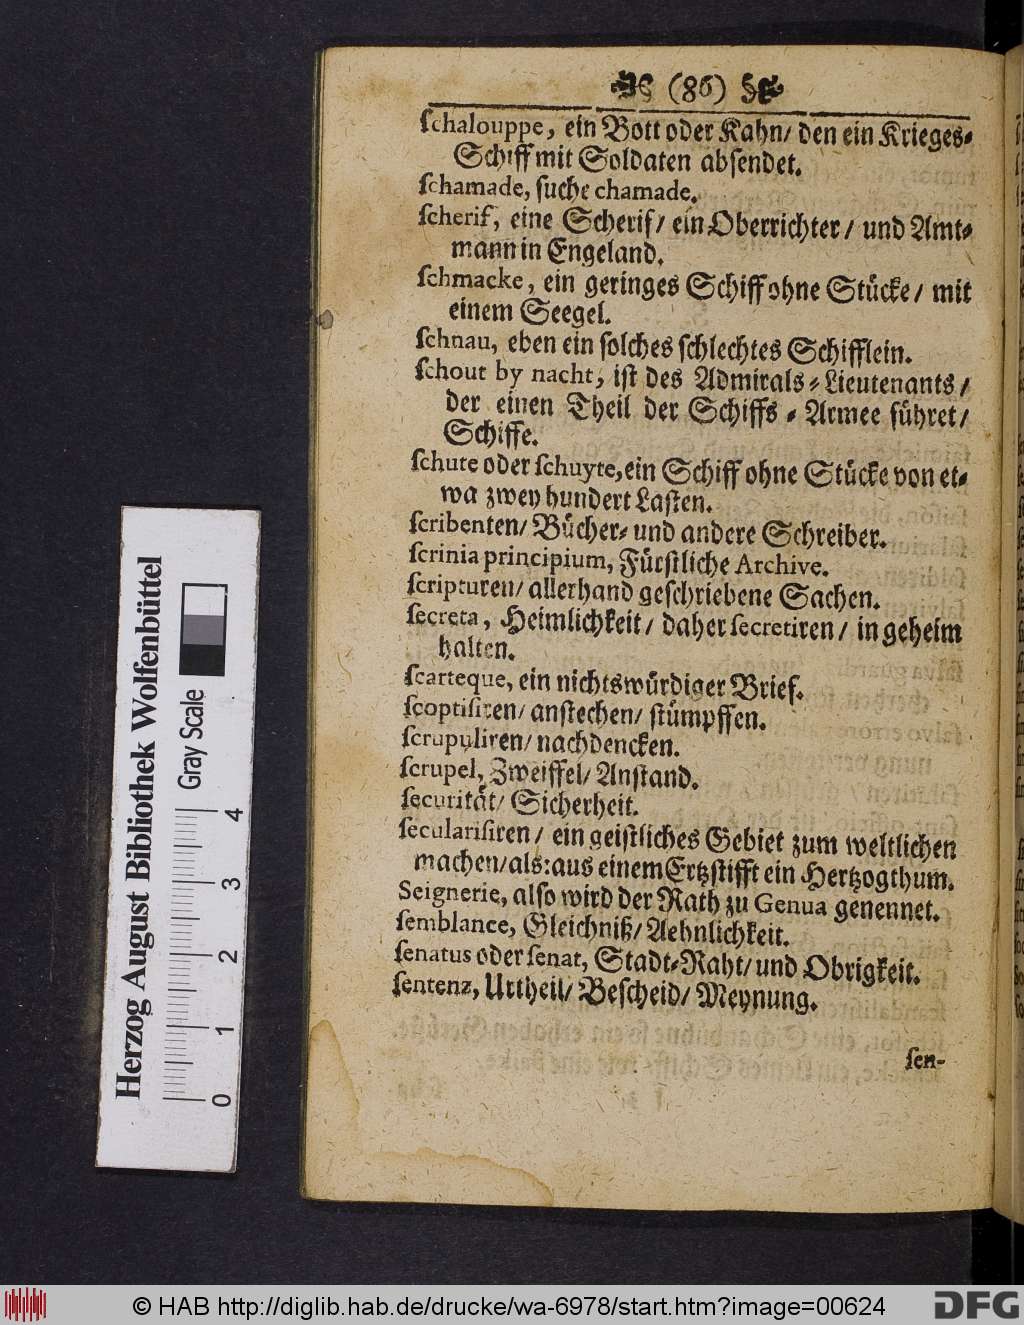 (86)
ſchalouppe, ein Bott oder Kahn/ den ein Krieges⸗
Schiff mit Soldaten abſendet.
ſchamade, ſuche chamade.
ſcherif, eine Scherif/ ein Oberrichter/ und Amt⸗
mann in Engeland.
ſchmacke, ein geringes Schiff ohne Stücke/ mit
einem Seegel.
ſchnau, eben ein ſolches ſchlechtes Schifflein.
ſchout by nacht, iſt des Admirals⸗Lieutenants/
der einen Theil der Schiffs⸗Armee führet/
Schiffe.
ſchute oder ſchuyte, ein Schiff ohne Stücke von et⸗
wa zwey hundert Laſten.
ſcribenten/ Bücher⸗ und andere Schreiber.
ſcrinia principium, Fürſtliche Archive.
ſcripturen/ allerhand geſchriebene Sachen.
ſecreta, Heimlichkeit/ daher ſecretiren/ in geheim
halten.
ſcarteque, ein nichtswürdiger Brief.
ſcoptiſiren/ anſtechen/ ſtümpffen.
ſcrupuliren/ nachdencken.
ſcrupel, Zweiffel/ Anſtand.
ſecurität/ Sicherheit.
ſeculariſiren/ ein geiſtliches Gebiet zum weltlichen
machen/ als: aus einem Ertzſtifft ein Hertzogthum.
Seignerie, alſo wird der Rath zu Genua genennet.
ſemblance, Gleichniß/ Aehnlichkeit.
ſenatus oder ſenat, Stadt⸗Raht/ und Obrigkeit.
ſentenz, Urtheil/ Beſcheid/ Meynung.
ſen-
Herzog August Bibliothek Wolfenbüttel
Gray Scale
0 1 2 3 4
© HAB http://diglib.hab.de/drucke/wa-6978/start.htm?image=00624
DFG